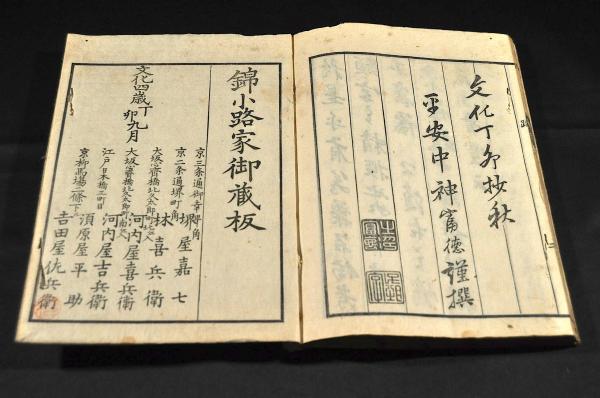 文化丁卯抄秋
平安中神富德謹撰
錦小路家御蔵板
文化四歳丁卯九月
京三条通御幸町角
堺屋嘉七
京二条通堺町角
林喜兵衛
大坂心齋橋北久太郎町
河内屋喜兵衛
大坂心齋橋北久太郎町
河内屋吉兵衛
江戸日本橋二町目
須原屋平助
京柳馬場二条下
吉田屋佐兵衛